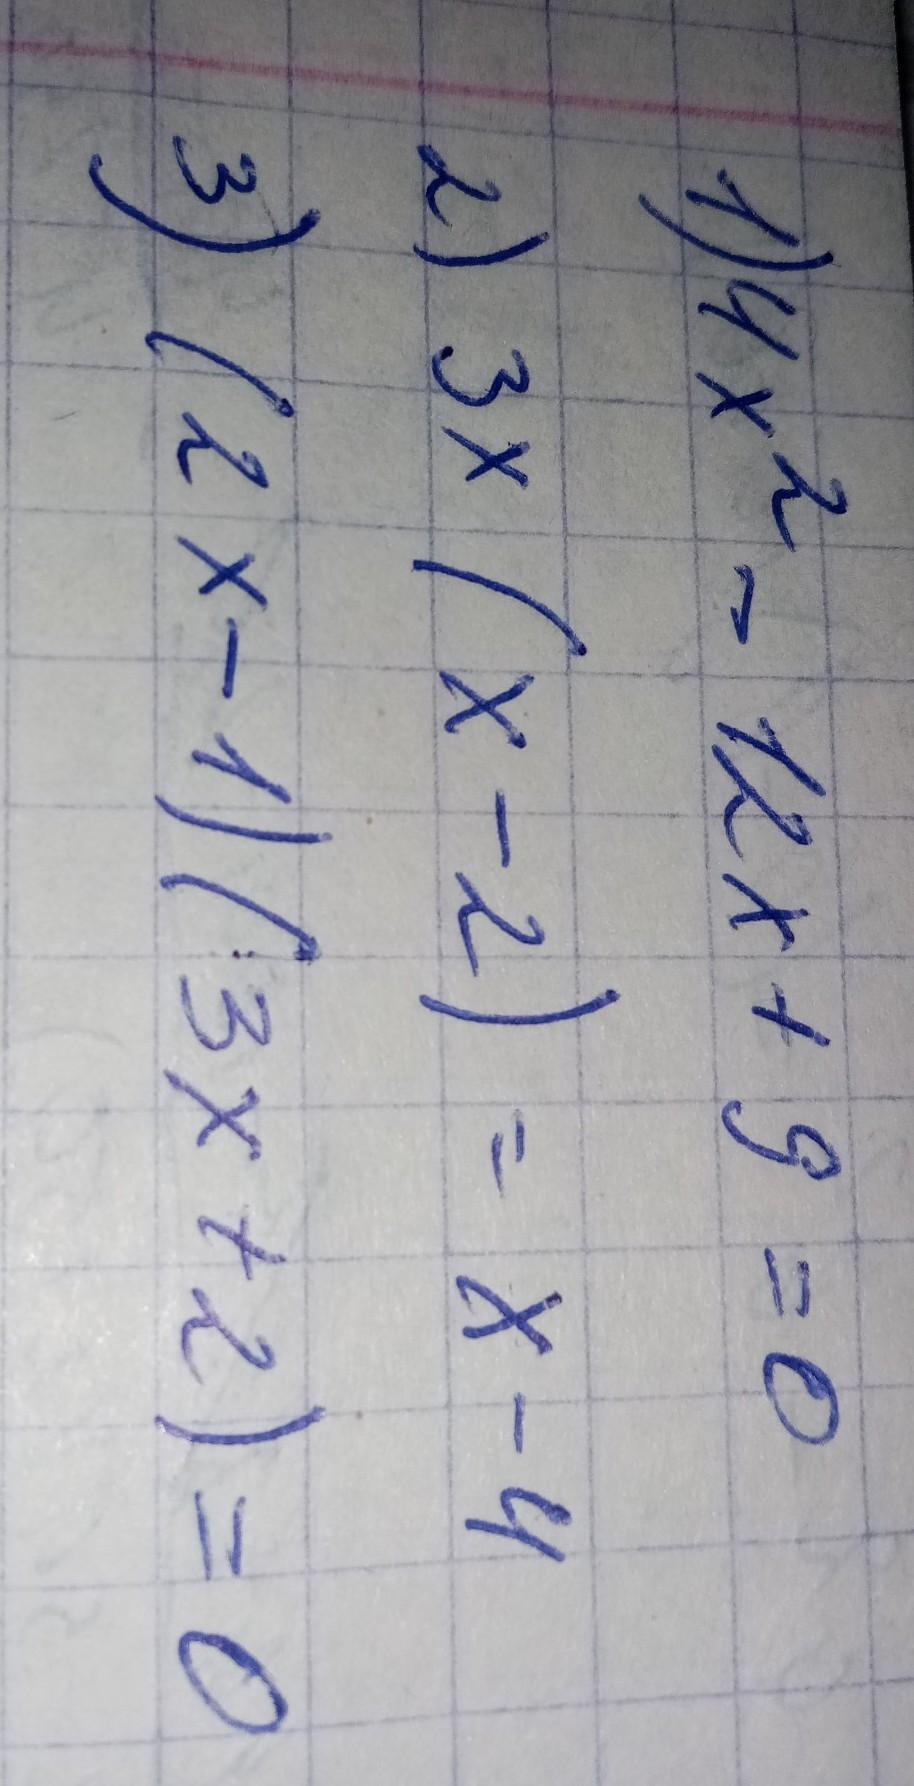 1) 4x² - 12x + 9 = 0
2) 3x (x - 2) = x - 4
3) (2x - 1)(3x + 2) = 0